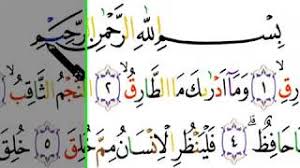 بِسْمِ اللّٰهِ الرَّحْمٰنِ الرَّحِيْمِ
رِقِۙ ١ وَمَآ اَدْرٰىكَ مَا الطَّارِقُۙ ٢ النَّجْمُ الثَّاقِبُۙ
حَافِظٌۗ ٤ فَلْيَنْظُرِ الْاِنْسَانُ مِمَّ خُلِقَۗ ٥ خُلِقَ